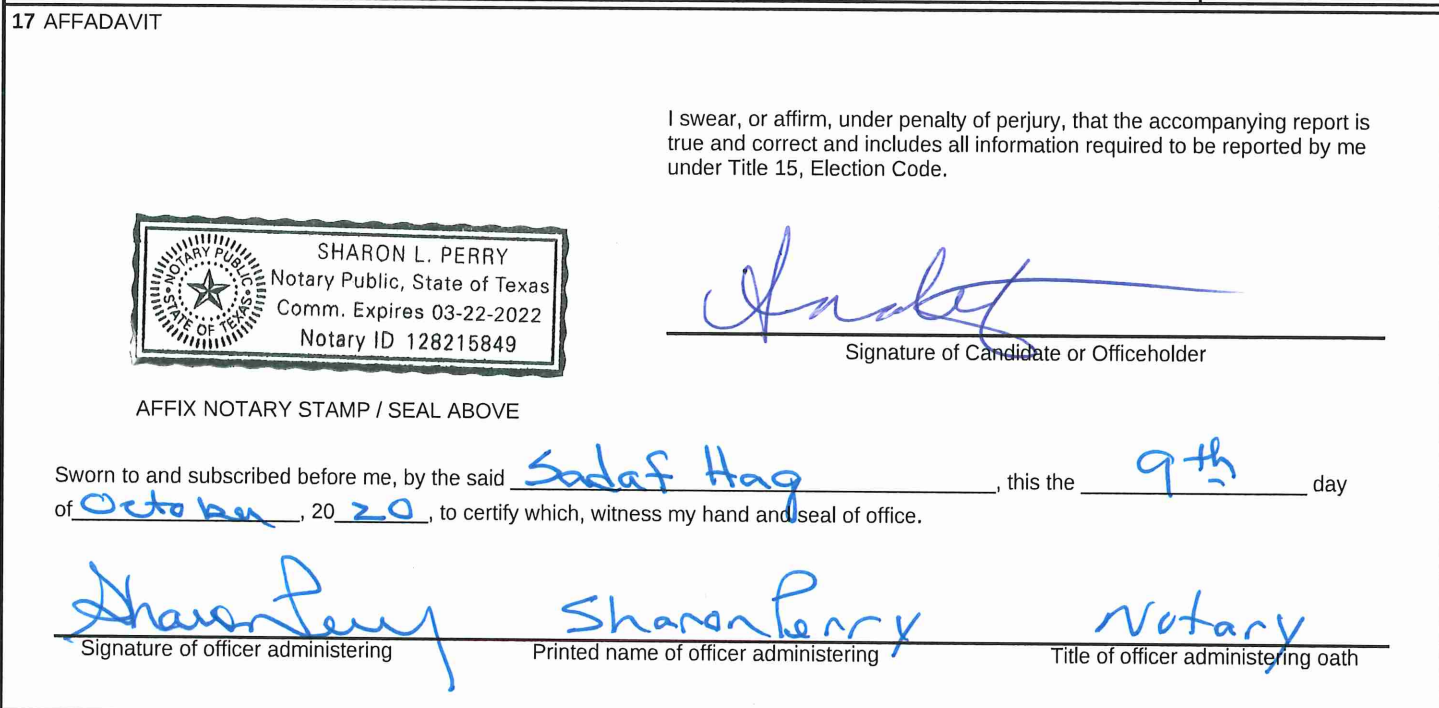 17 AFFADAVIT
I swear, or affirm, under penalty of perjury, that the accompanying report is
true and correct and includes all information required to be reported by me
under Title 15, Election Code.
NOTARY PUBLIC
STATE OF TEXAS
SHARON L. PERRY
Notary Public, State of Texas
Comm. Expires 03-22-2022
Notary ID 128215849
Signature of Candidate or Officeholder
AFFIX NOTARY STAMP / SEAL ABOVE
Sworn to and subscribed before me, by the said Sadaf Haq, this the 9th day
of October, 20 20, to certify which, witness my hand and seal of office.
Sharon Perry Sharon Perry Notary
Signature of officer administering Printed name of officer administering Title of officer administering oath